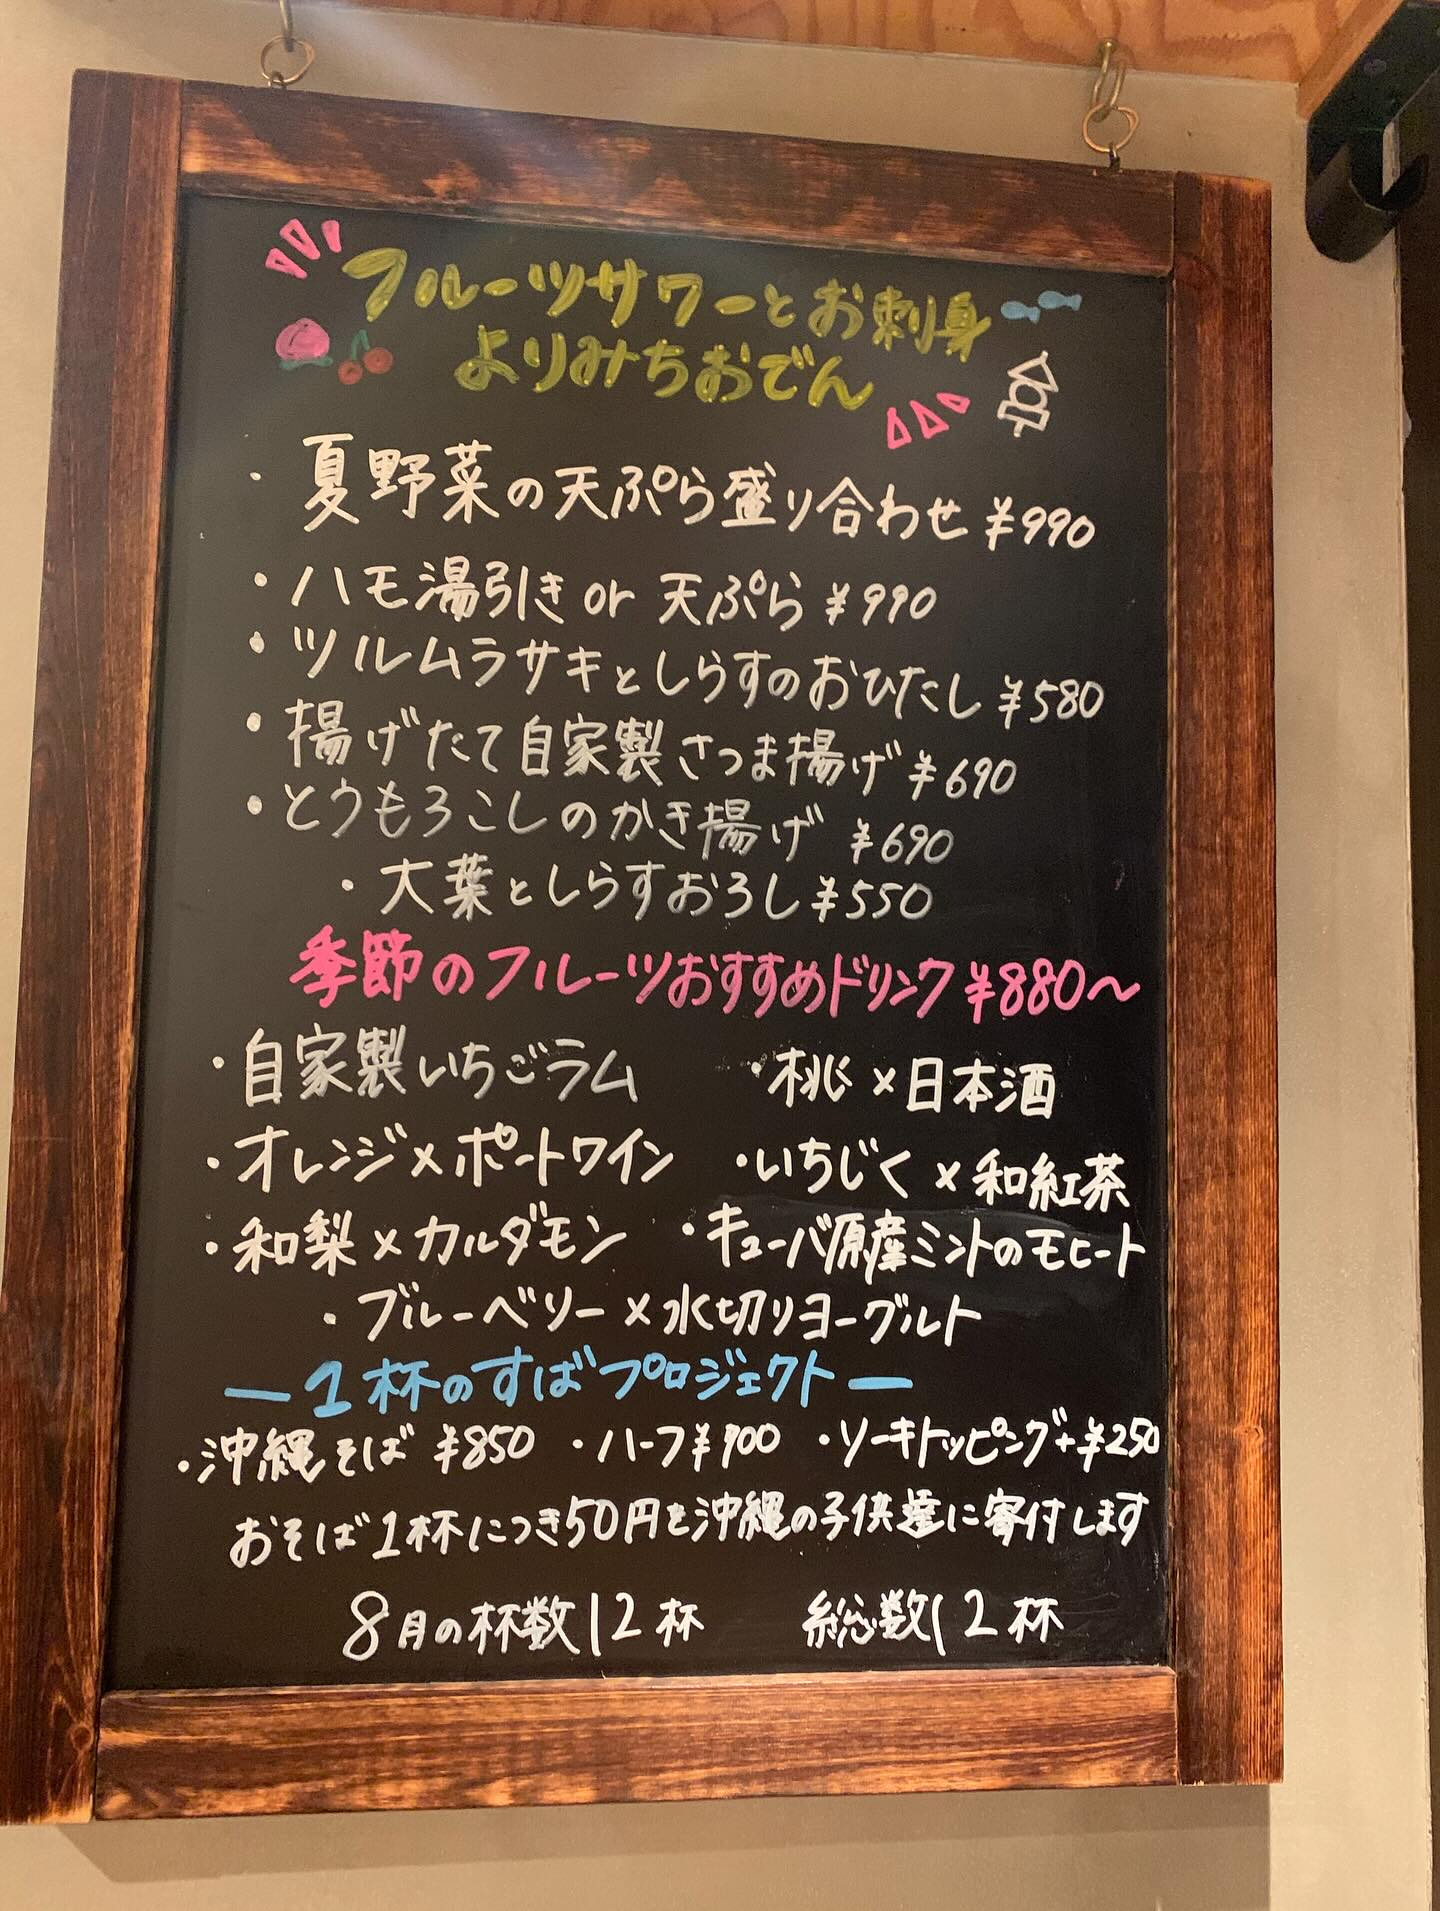 フルーツサワーとお刺身
よりみちおでん
・夏野菜の天ぷら盛り合わせ ¥990
・ハモ湯引き or 天ぷら ¥990
・ツルムラサキとしらすのおひたし ¥580
・揚げたて自家製さつま揚げ ¥690
・とうもろこしのかき揚げ ¥690
・大葉としらすおろし ¥550
季節のフルーツおすすめドリンク ¥880〜
・自家製いちごラム ・桃×日本酒
・オレンジ×ポートワイン ・いちじく×和紅茶
・和梨×カルダモン ・キューバ原産ミントのモヒート
・ブルーベリー×水切りヨーグルト
ー1杯のすばプロジェクトー
・沖縄そば ¥850 ・ハーフ ¥700 ・ソーキトッピング+¥250
おそば1杯につき50円を沖縄の子供達に寄付します
8月の杯数12杯 総数12杯